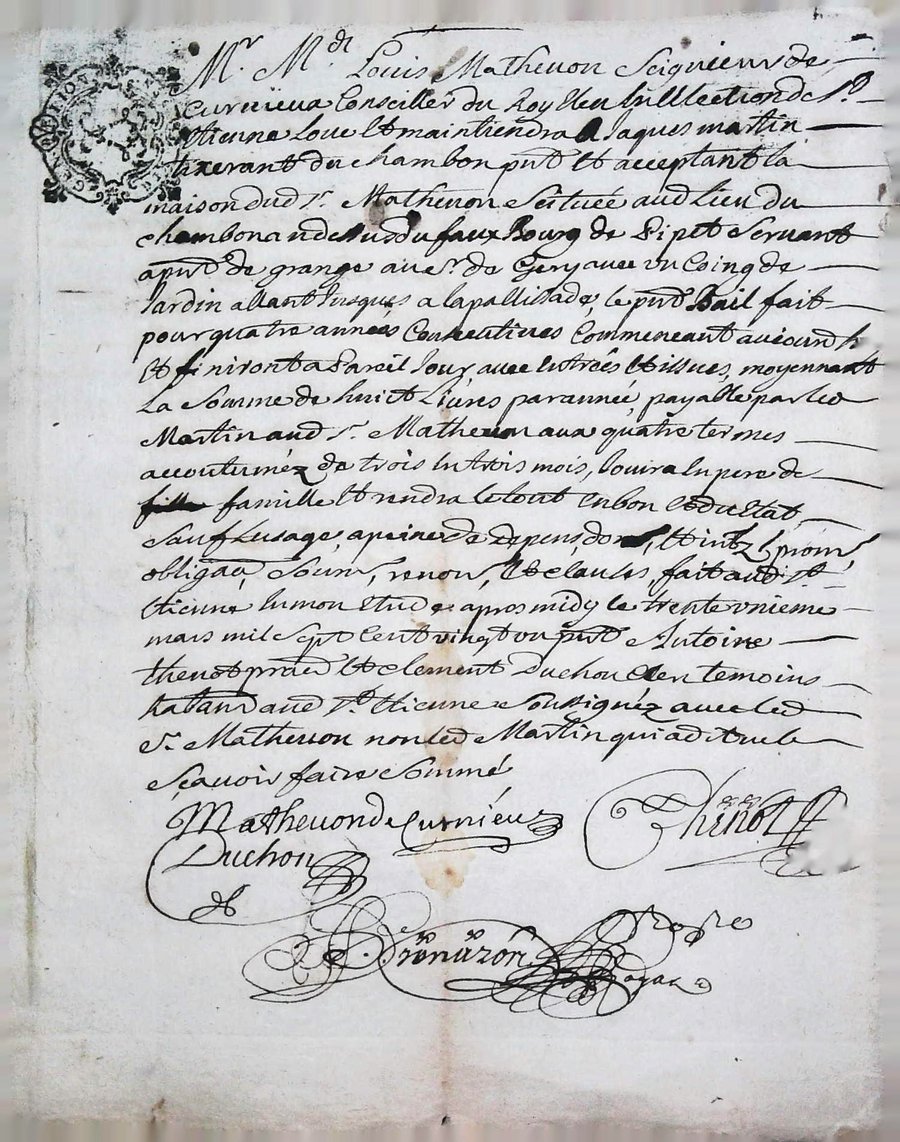 Mr. Mre Louis Mathevon Seigneur de
Curnieux Conseiller du Roy Eleu En l'Election de St
Etienne Loue Et maintiendra A Jaques martin
tixerant du chambon pnt Et acceptant la
maison dud Sr. Mathevon Scituée aud Lieu du
chambon au dessus du faux Bourg de Pipet Servant
a pnt de grange au Sr. de Gery avec un Coing de
Jardin allant Jusques a la pallissade, le pnt Bail fait
pour quatre années Consecutives Commencant aujourd'h
Et finiront a Pareil Jour avec Entrées Et issues, moyennant
La Somme de huict Livres par année, payable par led
Martin aud Sr. Mathevon aux quatre termes
accoutumez de trois En trois mois, Jouira En pere de
famille Et rendra le tout En bon Et du Estat
Sauf Lusage, a peine de depens, dom, Et intz
obligaon, Soumn, renonn, Et clauses, fait aud St
Etienne En mon Etude apres midy le trente unieme
mars mil Sept Cent vingt un pnt Antoine
thenot pratn Et clement Duchon Clerc temoins
habans aud St. Etienne Soussignéz avec led
Sr. Mathevon non led Martin qui a dit ne le
Sçavoir faire Sommé
Mathevon de Curnieux
Thenot
Duchon